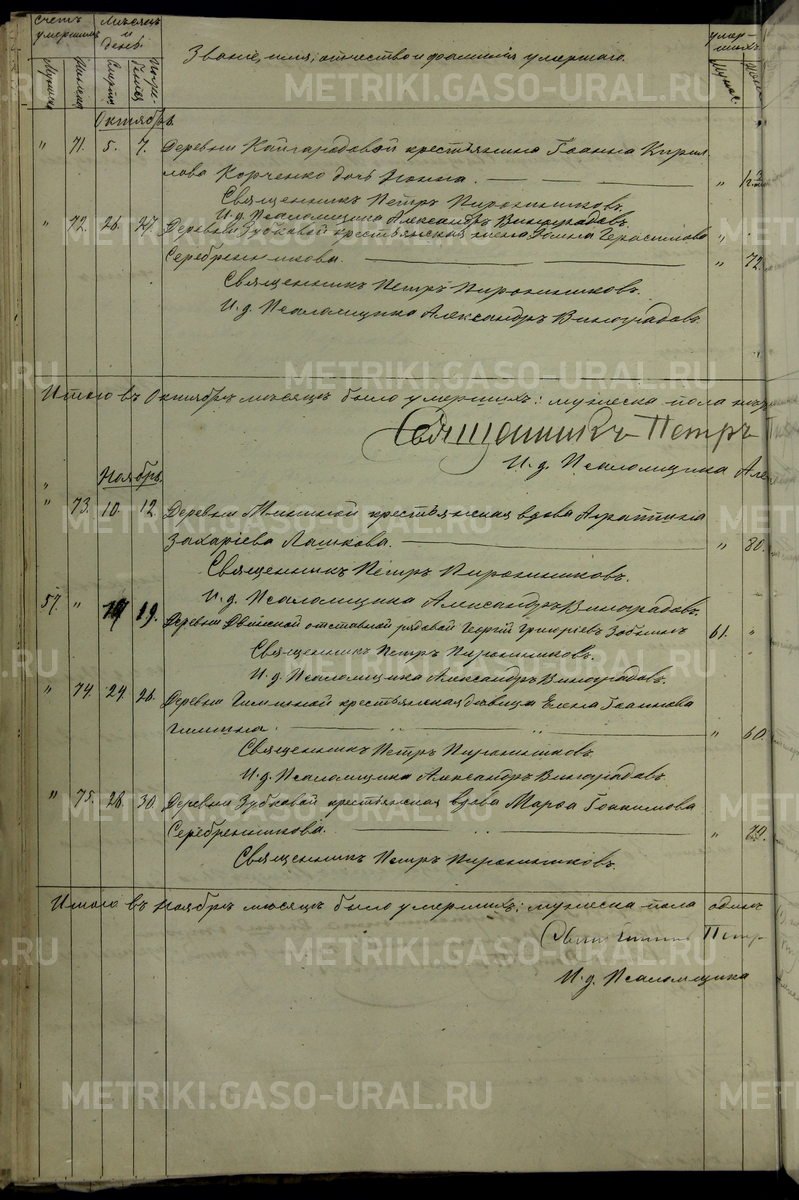 Счетъ умершихъ.
Мѣсяцъ и день.
Званіе, имя, отчество и фамилія умершаго.
Мужска
Женска
Смерти
Погребенія
Октябрь.
" 71. 5. 7. Деревни Кайгородовой крестьянина Іоанна Кирил-
лова Корченко дочь Нонна. "
Священникъ Петръ Пирожниковъ.
И. д. Псаломщика Александръ Виноградовъ.
" 72. 26. 27. Деревни Зубковой крестьянская жена Герасимова "
Серебренникова. " 72.
Священникъ Петръ Пирожниковъ.
И. д. Псаломщика Александръ Виноградовъ.
Итого въ Октябрѣ мѣсяцѣ было умершихъ: мужеска пола
Священникъ Петръ
И. д. Псаломщика
Ноябрь.
" 73. 10. 12. Деревни крестьянская вдова
Захаріева Лашкова. " 80.
Священникъ Петръ Пирожниковъ.
И. д. Псаломщика Александръ Виноградовъ.
57. " 17 19. Деревни отставной рядовой Георгій Григоріевъ Зобнинъ 61. "
Священникъ Петръ Пирожниковъ.
И. д. Псаломщика Александръ Виноградовъ.
" 74. 24. 26. Деревни крестьянская дѣвица Елена Іоаннова
" 60.
Священникъ Петръ Пирожниковъ.
И. д. Псаломщика Александръ Виноградовъ.
" 75. 28. 30. Деревни Зубковой крестьянская вдова Марѳа Іоакимова
Серебренникова. " 70.
Священникъ Петръ Пирожниковъ.
Итого въ Ноябрѣ мѣсяцѣ было умершихъ: мужеска пола одинъ
Священникъ Петръ
И. д. Псаломщика
METRIKI.GASO-URAL.RU